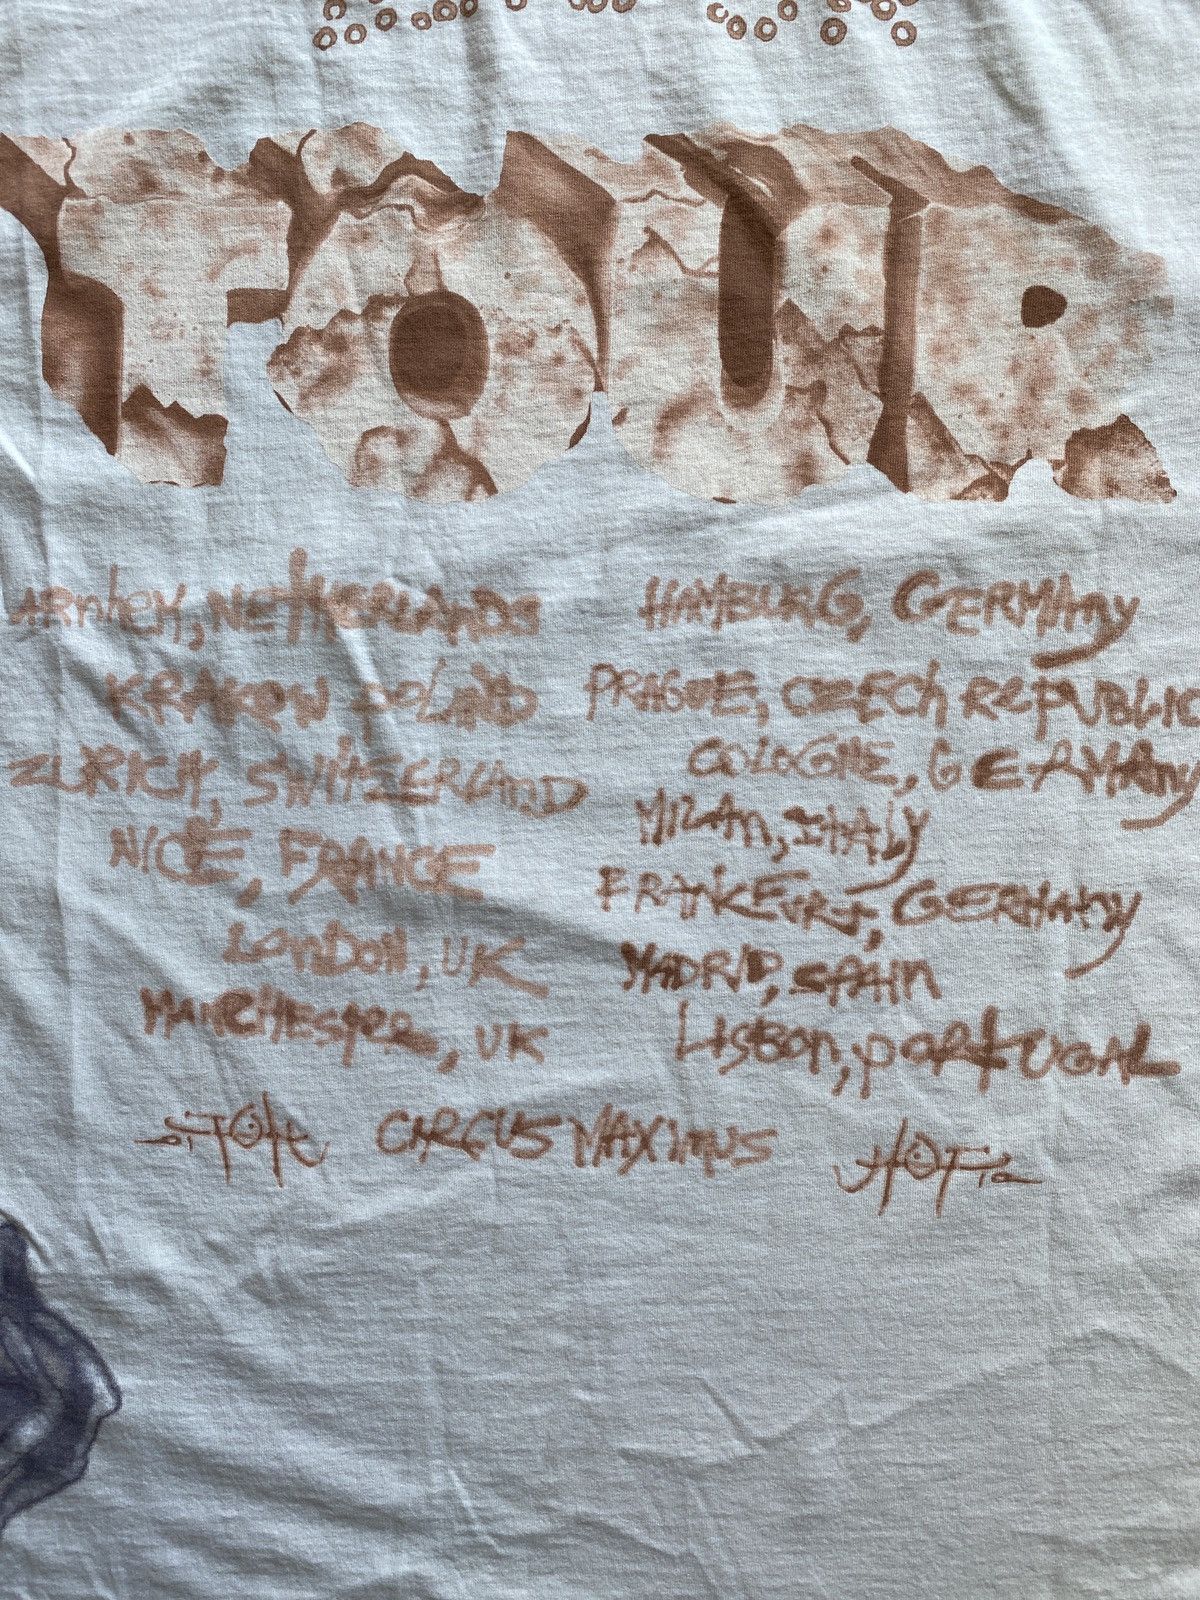 TOUR
ARNHEM, NETHERLANDS
KRAKOW POLAND
ZURICH, SWITZERLAND
NICE, FRANCE
LONDON, UK
MANCHESTER, UK
HAMBURG, GERMANY
PRAGUE, CZECH REPUBLIC
COLOGNE, GERMANY
MILAN, ITALY
FRANKFURT, GERMANY
MADRID, SPAIN
LISBON, PORTUGAL
CIRCUS MAXIMUS